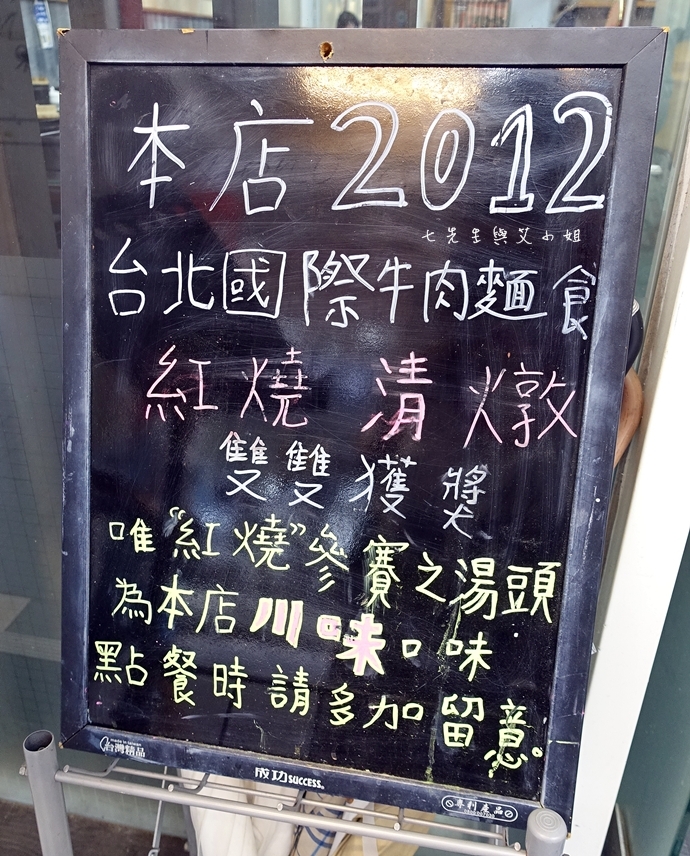 本店2012
七先生與艾小姐
台北國際牛肉麵食
紅燒 清燉
雙雙獲獎
唯"紅燒"參賽之湯頭
為本店川味口味
點餐時請多加留意。
made in taiwan
台灣精品
成功 SUCCESS
專利產品